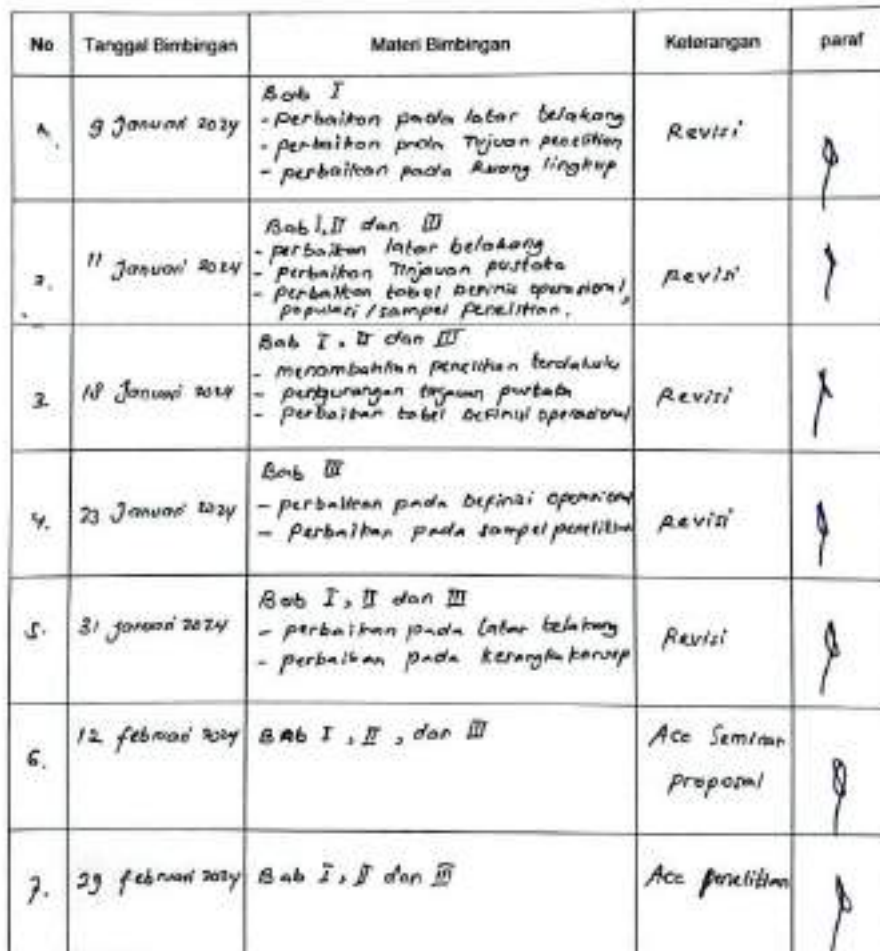 No Tanggal Bimbingan Materi Bimbingan Keterangan paraf
1. 9 Januari 2024 Bab I Revisi
- perbaikan pada latar belakang
- perbaikan pada Tujuan penelitian
- perbaikan pada Ruang lingkup
2. 11 Januari 2024 Bab I, II dan III Revisi
- perbaikan latar belakang
- perbaikan Tinjauan pustaka
- perbaikan tabel Definisi operasional,
populasi / sampel penelitian.
3. 18 Januari 2024 Bab I, II dan III Revisi
- menambahkan penelitian terdahulu
- pengurangan tinjauan pustaka
- perbaikan tabel Definisi operasional
4. 23 Januari 2024 Bab III Revisi
- perbaikan pada Definisi operasional
- Perbaikan pada sampel penelitian
5. 31 januari 2024 Bab I, II dan III Revisi
- perbaikan pada latar belakang
- perbaikan pada kerangka konsep
6. 12 februari 2024 BAb I, II, dan III Acc Seminar
proposal
7. 29 februari 2024 Bab I, II dan III Acc penelitian